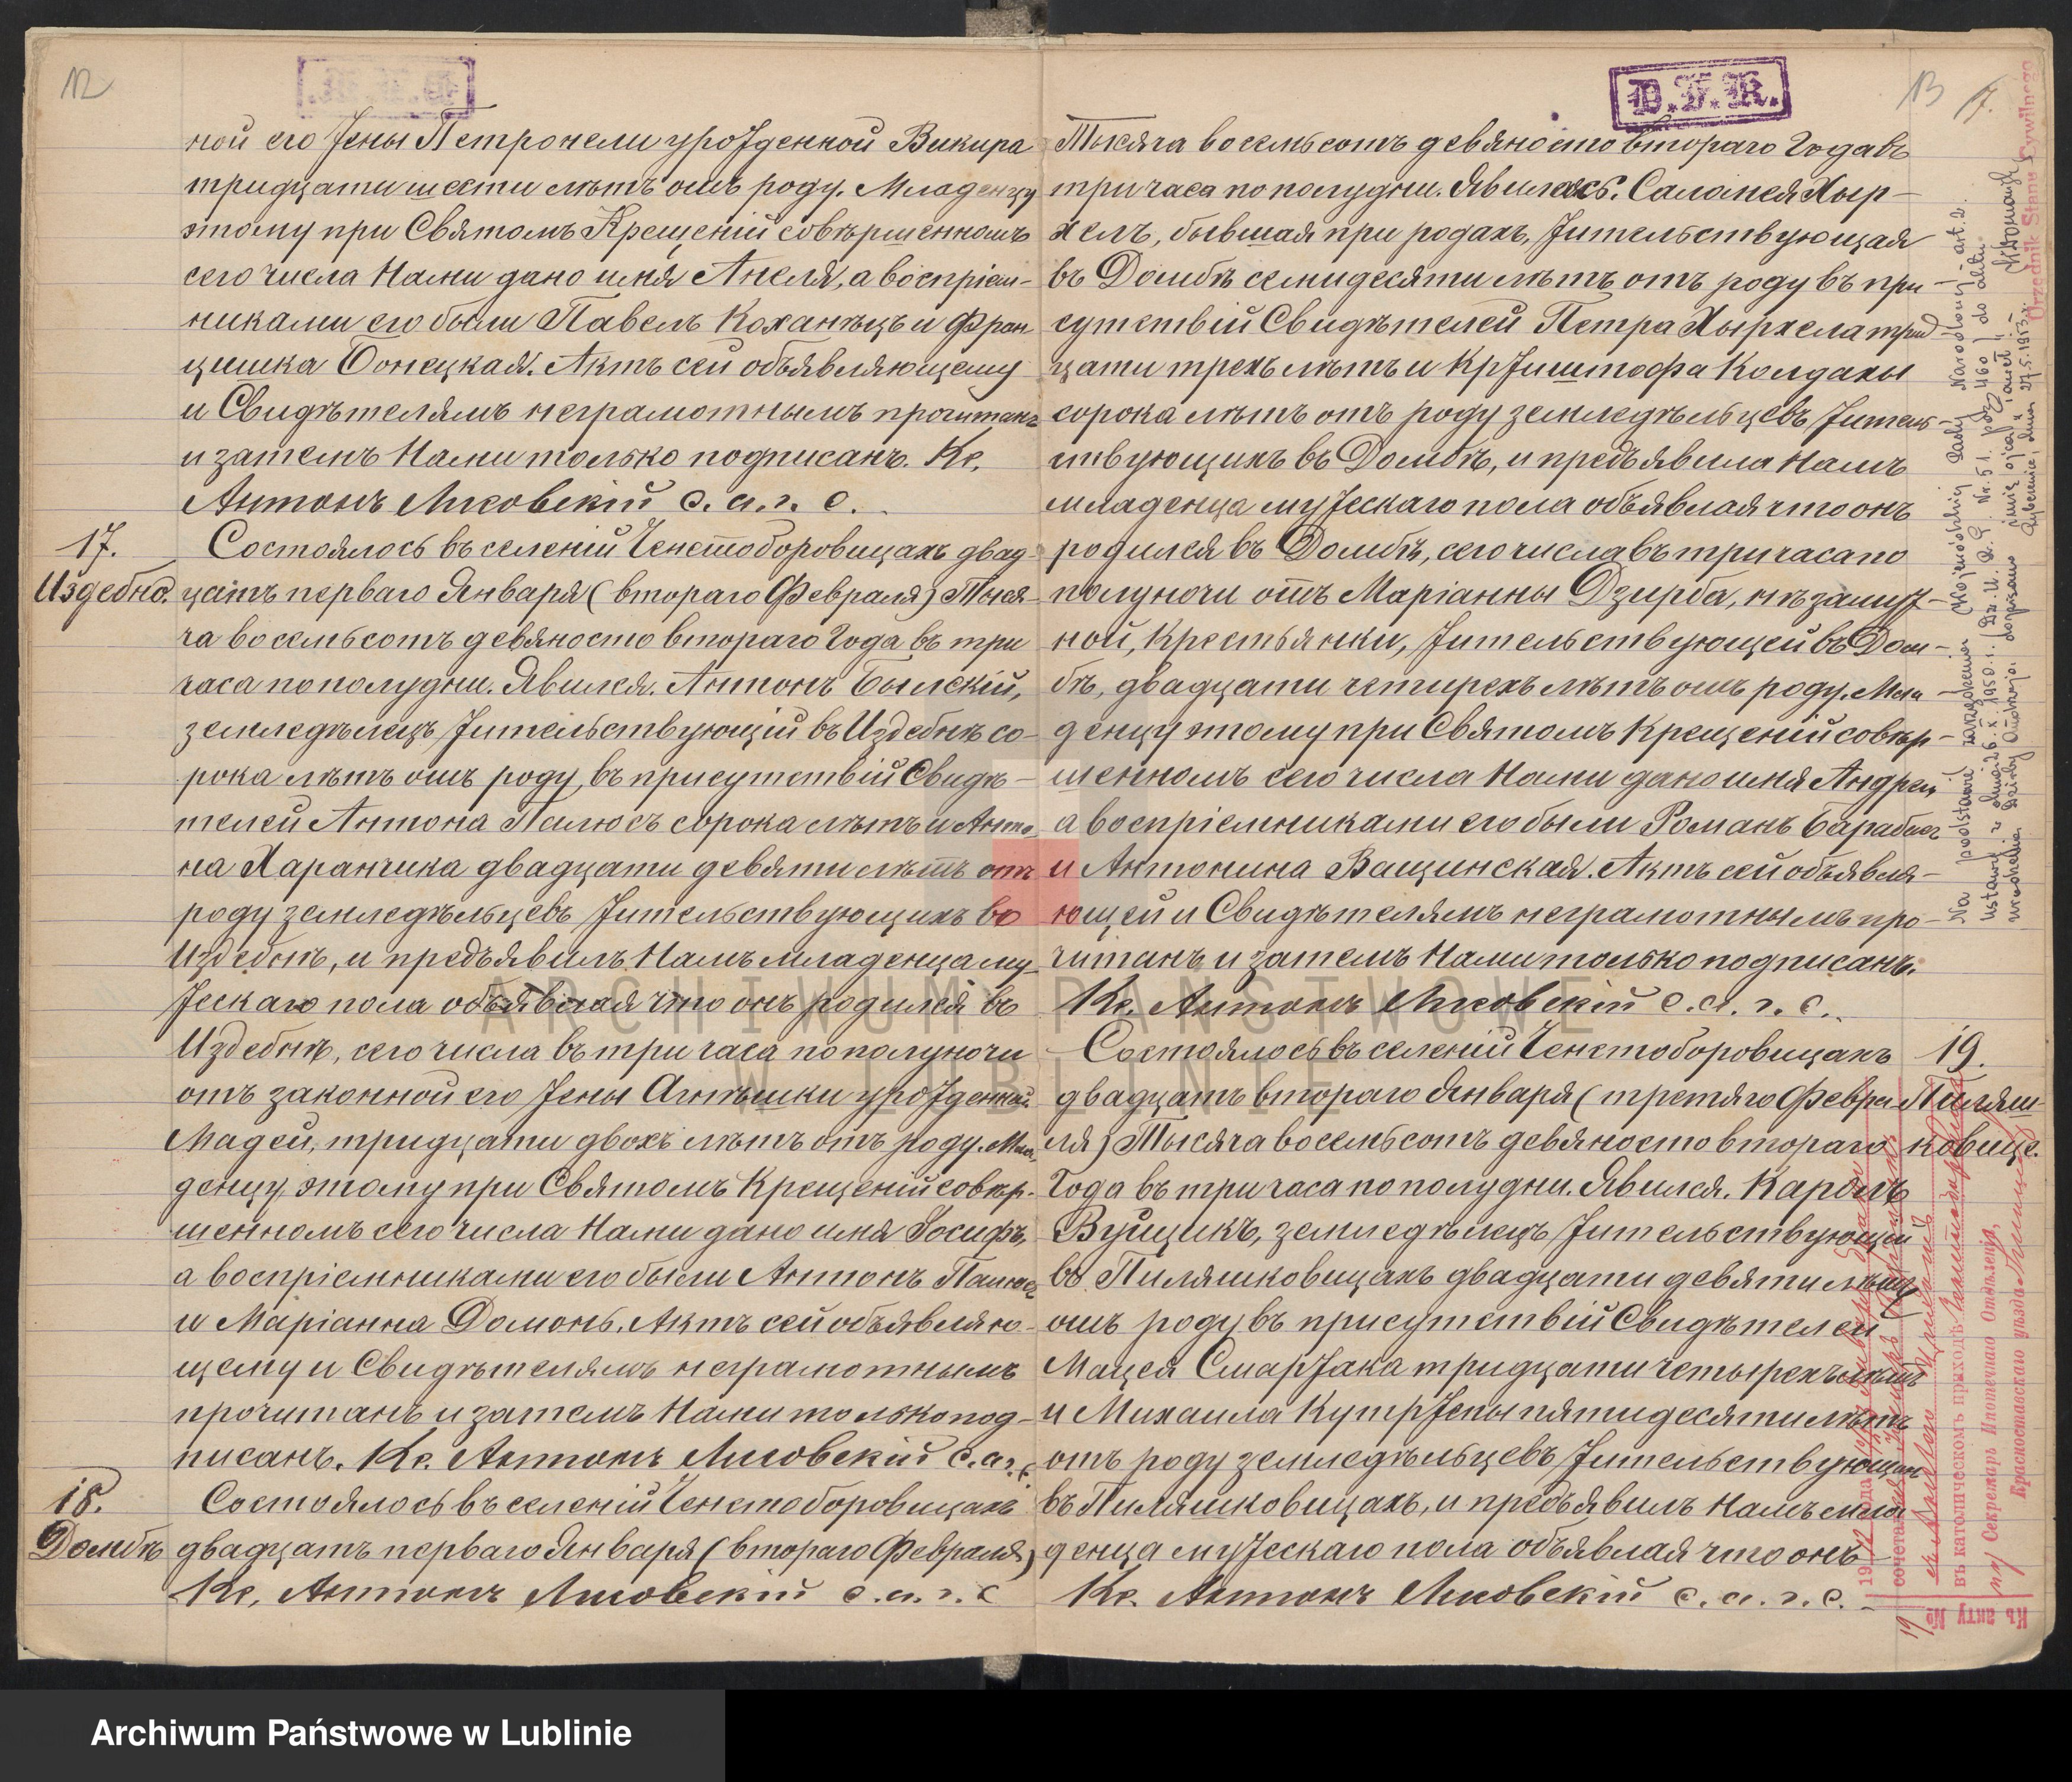 12
ной его жены Петронели урожденной Викира
тридцати шести лѣтъ отъ роду. Младенцу
этому при Святомъ Крещеній совѣршенномъ
сего числа Нами дано имя Анеля, а воспріем-
никами его были Павелъ Коханѣцъ и Фран-
цишка Бонецкая. Актъ сей объявляющему
и Свидѣтелямъ неграмотнымъ прочитанъ
и затемъ Нами только подписанъ. Кс.
Антонъ с. а. г. с.
17.
Издебно.
Состоялось въ селеній Ченстоборовицахъ двад-
цать перваго Января (втораго Февраля) Тыся-
ча восемьсотъ девяносто втораго Года въ три
часа по полудни. Явился. Антонъ Былскій,
земледѣлецъ жительствующій въ Издебнѣ со-
рока лѣтъ отъ роду, въ присутствій Свидѣ-
телей Антона Палюсъ сорока лѣтъ и Анто-
на Харанчика двадцати девяти лѣтъ отъ
роду земледѣльцевъ жительствующихъ во
Издебнѣ, и предъявилъ Намъ младенца му-
жескаго пола объявлая что онъ родился во
Издебнѣ, сего числа въ три часа по полуночи
отъ законной его жены Агнѣшки урожденной
Мадей, тридцати двохъ лѣтъ отъ роду. Мла-
денцу этому при Святомъ Крещеній совѣр-
шенномъ сего числа Нами дано имя Іосифъ,
а воспріемниками его были Антонъ Палюсъ
и Маріанна Домонь. Актъ сей объявляю-
щему и Свидѣтелямъ неграмотнымъ
прочитанъ и затемъ Нами только под-
писанъ. Кс. Антонъ с. а. г. с.
18.
Домбѣ
Состоялось въ селеній Ченстоборовицахъ
двадцать перваго Января (втораго Февраля)
Кс. Антонъ с. а. г. с
D.F.R.
13
7.
Тысяча восемьсотъ девяносто втораго Года въ
три часа по полудни. Явилась. Саломея Хыр-
хелъ, бывшая при родахъ, жительствующая
въ Домбѣ семидесяти лѣтъ отъ роду въ при-
сутствій Свидѣтелей Петра Хырхела трид-
цати трехъ лѣтъ и Кржиштофа Колдахы
сорока лѣтъ отъ роду земледѣльцевъ жительс-
ствующихъ въ Домбѣ, и предъявила Намъ
младенца мужескаго пола объявлая что онъ
родился въ Домбѣ, сего числа въ три часа по
полуночи отъ Маріанны Дзирба, нѣзамуж-
ной, Крестьянки, жительствующей въ Дом-
бѣ, двадцати четирехъ лѣтъ отъ роду. Мла-
денцу этому при Святомъ Крещеній совѣр-
шенномъ сего числа Нами дано имя Андрей
а воспріемниками его были Романъ Барабасъ
и Антонина Ващинская. Актъ сей объявля-
ющей и Свидѣтелямъ неграмотнымъ про-
читанъ и затемъ Нами только подписанъ.
Кс. Антонъ с. а. г. с.
Состоялось въ селеній Ченстоборовицахъ
19.
двадцать втораго Января (третяго Февра-
Пиляш-
ля) Тысяча восемьсотъ девяносто втораго
ковице.
Года въ три часа по полудни. Явился. Кароль
Вуйцикъ, земледѣлецъ жительствующій
во Пиляшковицахъ двадцати девяти лѣтъ
отъ роду въ присутствій Свидѣтелей
Мацея Смаржака тридцати четырехъ лѣтъ
и Михаила Кутржепы пятидесяти лѣтъ
отъ роду земледѣльцевъ жительствующихъ
въ Пиляшковицахъ, и предъявилъ Намъ мла-
денца мужескаго пола объявлая что онъ
Кс. Антонъ с. а. г. с.
Na podstawie zarządzenia Wojewódzkiej Rady Narodowej - art. 2.
ustawy z dnia 26.X.1950 r. (Dz.U.R.P. Nr. 51 poz. 460) do aktu
urodzenia Dzirby Andrzeja dopisano imię ojca
dnia 27.5.1953 r.
Urzędnik Stanu Cywilnego
Къ акту №
19
въ католическомъ приходѣ
Секретарь Ипотечнаго Отдѣленія,
Красноставскаго уѣзда
ARCHIWUM PAŃSTWOWE
W LUBLINIE
Archiwum Państwowe w Lublinie